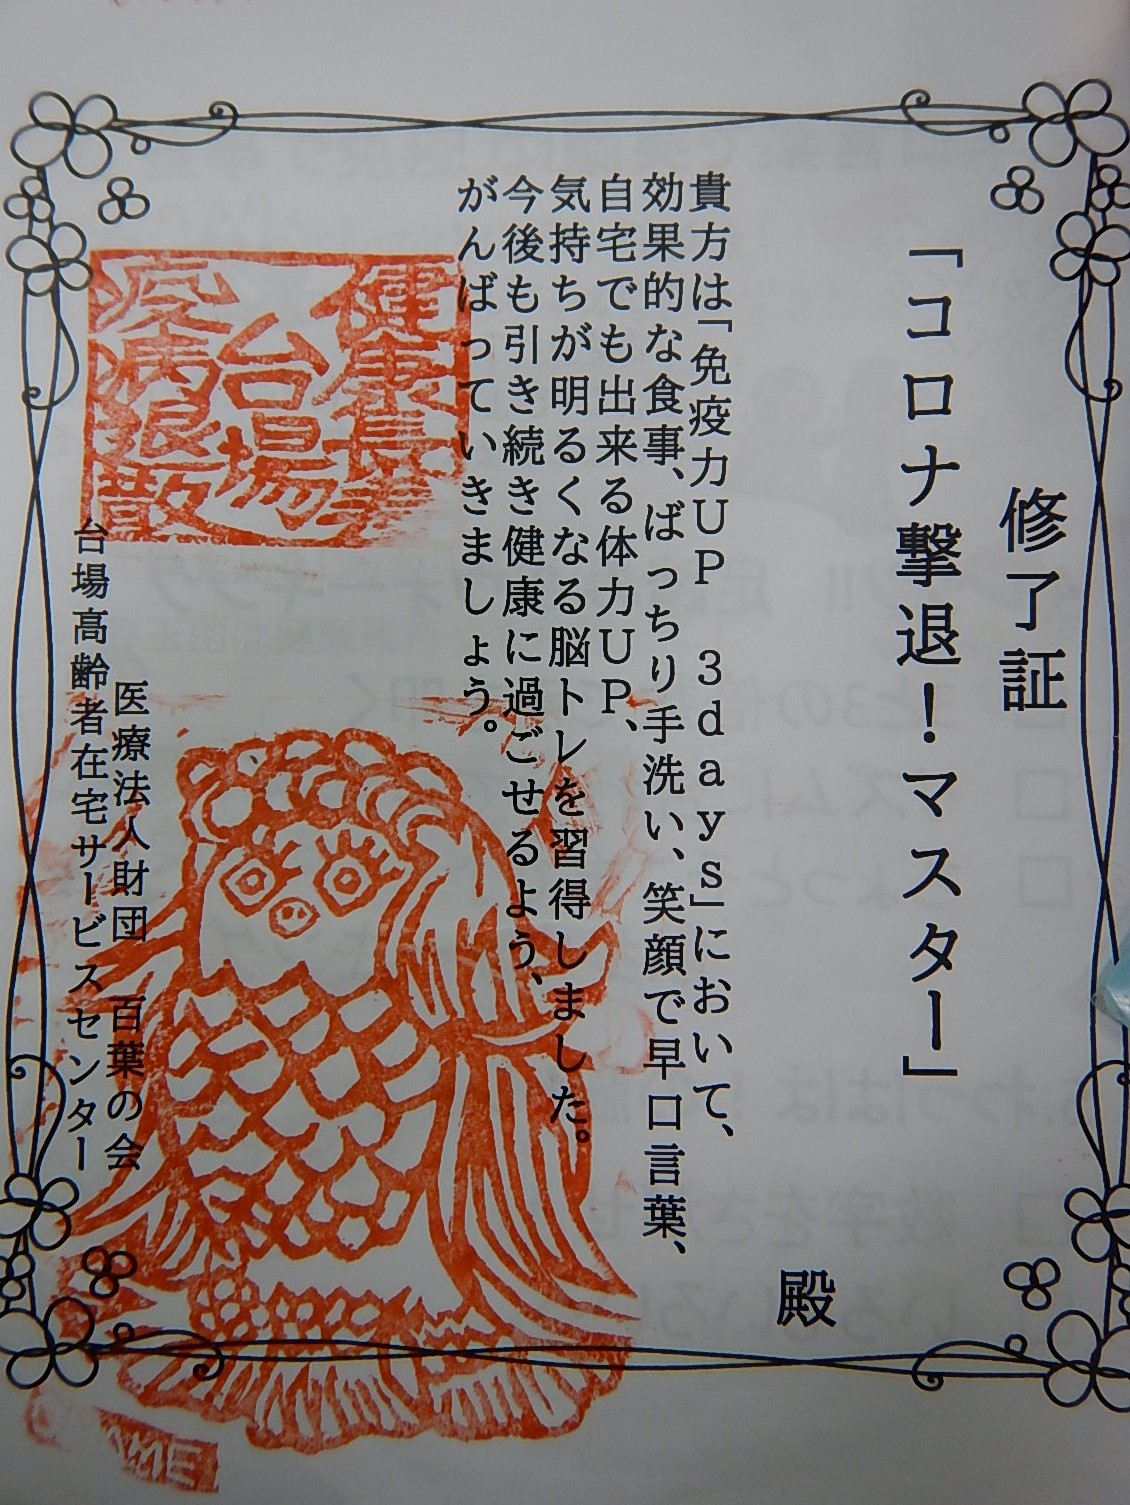 修了証
「コロナ撃退！マスター」
殿
貴方は「免疫力ＵＰ　３ｄａｙｓ」において、
効果的な食事、ばっちり手洗い、笑顔で早口言葉、
自宅でも出来る体力ＵＰ、
気持ちが明るくなる脳トレを習得しました。
今後も引き続き健康に過ごせるよう、
がんばっていきましょう。
健康長寿
台場
疫病退散
医療法人財団　百葉の会
台場高齢者在宅サービスセンター